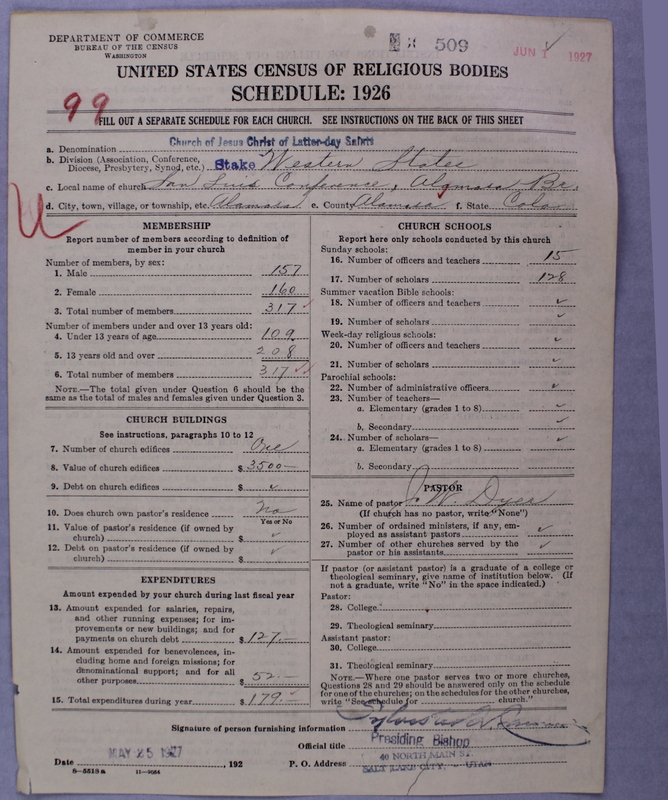 DEPARTMENT OF COMMERCE
BUREAU OF THE CENSUS
WASHINGTON
509
JUN 1 1927
UNITED STATES CENSUS OF RELIGIOUS BODIES
SCHEDULE: 1926
99
FILL OUT A SEPARATE SCHEDULE FOR EACH CHURCH. SEE INSTRUCTIONS ON THE BACK OF THIS SHEET
a. Denomination Church of Jesus Christ of Latter-day Saints
b. Division (Association, Conference, Diocese, Presbytery, Synod, etc.) Stake Western States
c. Local name of church San Luis Conference, Alamosa Br.
d. City, town, village, or township, etc. Alamosa e. County Alamosa f. State Colo
MEMBERSHIP
Report number of members according to definition of
member in your church
Number of members, by sex:
1. Male 157
2. Female 160
3. Total number of members 317
Number of members under and over 13 years old:
4. Under 13 years of age 109
5. 13 years old and over 208
6. Total number of members 317
NOTE.—The total given under Question 6 should be the
same as the total of males and females given under Question 3.
CHURCH BUILDINGS
See instructions, paragraphs 10 to 12
7. Number of church edifices One
8. Value of church edifices $ 3500—
9. Debt on church edifices $
10. Does church own pastor's residence? No
Yes or No
11. Value of pastor's residence (if owned by
church) $
12. Debt on pastor's residence (if owned by
church) $
EXPENDITURES
Amount expended by your church during last fiscal year
13. Amount expended for salaries, repairs,
and other running expenses; for im-
provements or new buildings; and for
payments on church debt $ 127.—
14. Amount expended for benevolences, in-
cluding home and foreign missions; for
denominational support; and for all
other purposes $ 52.—
15. Total expenditures during year $ 179.—
CHURCH SCHOOLS
Report here only schools conducted by this church
Sunday schools:
16. Number of officers and teachers 15
17. Number of scholars 128
Summer vacation Bible schools:
18. Number of officers and teachers
19. Number of scholars
Week-day religious schools:
20. Number of officers and teachers
21. Number of scholars
Parochial schools:
22. Number of administrative officers
23. Number of teachers—
a. Elementary (grades 1 to 8)
b. Secondary
24. Number of scholars—
a. Elementary (grades 1 to 8)
b. Secondary
PASTOR
25. Name of pastor J. W. Dyer
(If church has no pastor, write "None")
26. Number of ordained ministers, if any, em-
ployed as assistant pastors
27. Number of other churches served by the
pastor or his assistants
If pastor (or assistant pastor) is a graduate of a college or
theological seminary, give name of institution below. (If
not a graduate, write "No" in the space indicated.)
Pastor:
28. College
29. Theological seminary
Assistant pastor:
30. College
31. Theological seminary
NOTE.—Where one pastor serves two or more churches,
Questions 28 and 29 should be answered only on the schedule
for one of the churches; on the schedules for the other churches,
write "See schedule for church."
Signature of person furnishing information
Official title Presiding Bishop
Date MAY 25 1927, 192 P. O. Address 40 NORTH MAIN ST.
SALT LAKE CITY, UTAH
8—5518a 11—9054